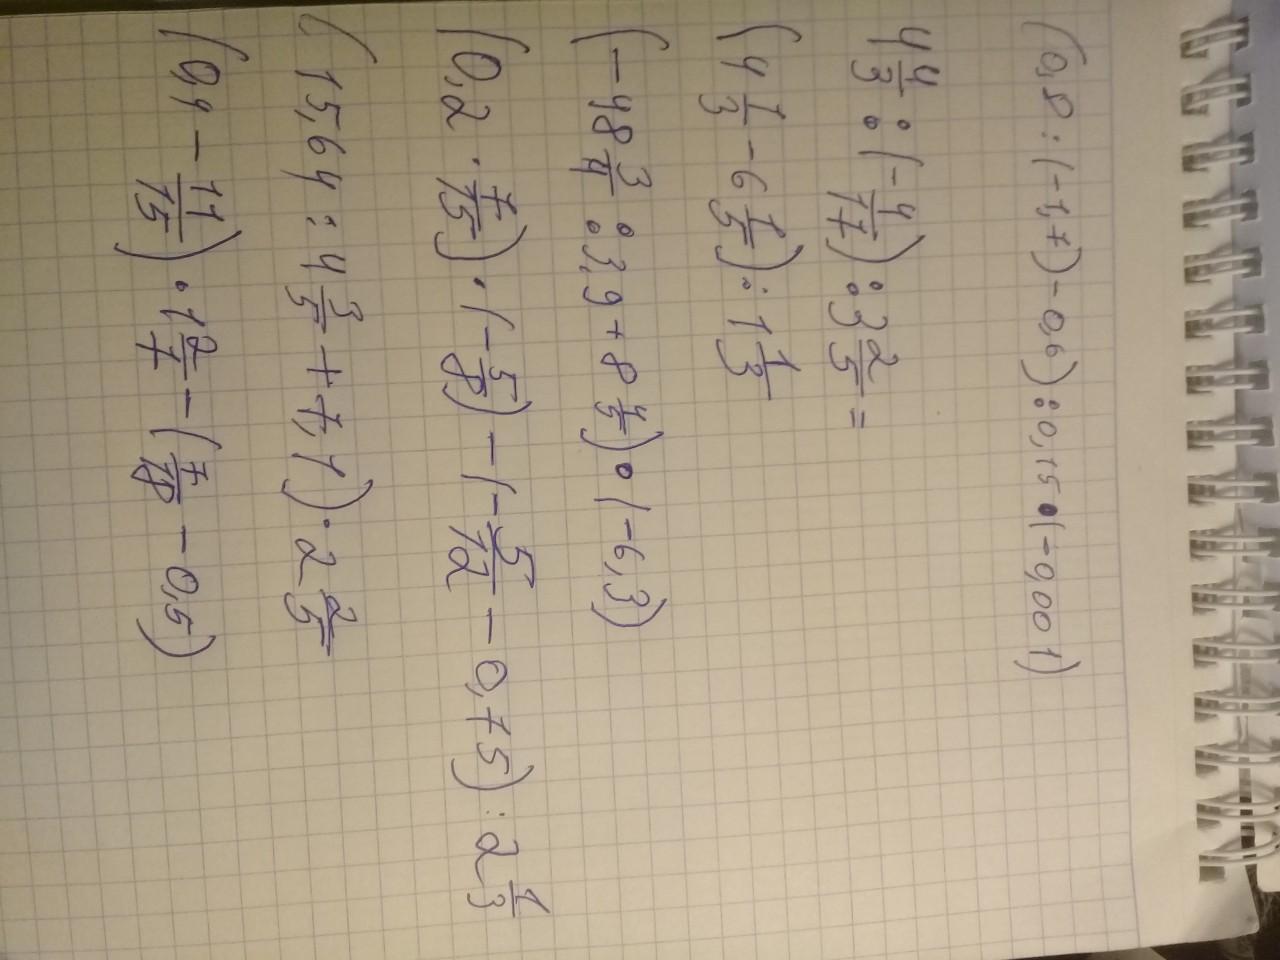 (0,8 : (-1,7) - 0,6) : 0,15 • (-0,001)
4 4/3 : (-4/17) : 3 2/5 =
(4 1/3 - 6 1/5) : 1 1/3
(-48 3/4 : 3,9 + 8 4/5) • (-6,3)
(0,2 · 7/15) · (-5/8) - (-5/12 - 0,75) : 2 1/3
(15,64 : 4 3/5 + 7,1) · 2 2/5
(0,4 - 11/15) · 1 2/7 - (7/18 - 0,5)